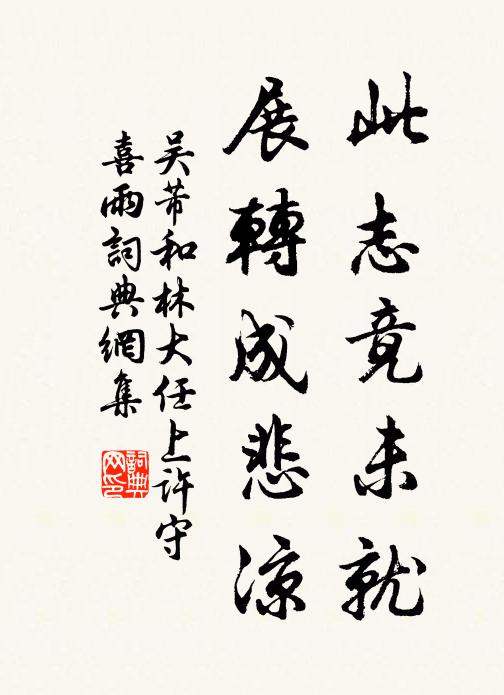 此志竟未就
展轉成悲涼
吴芾和林大任上許守
喜雨詞典網集
詞典
网印